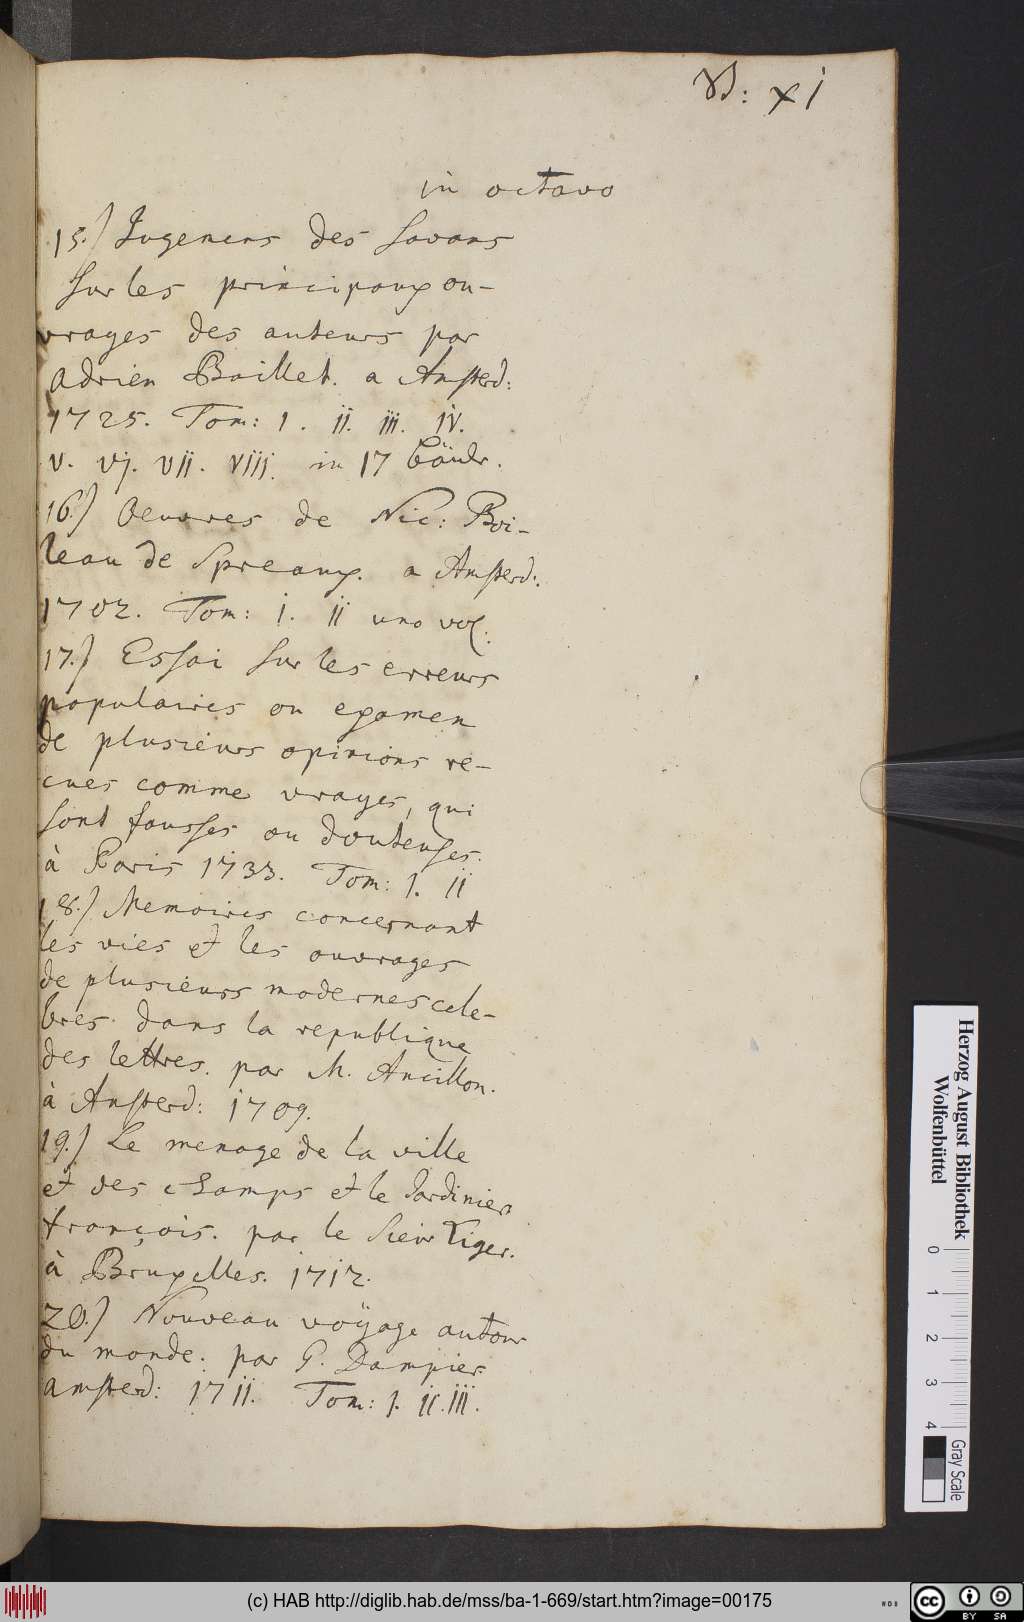 B: xi
in octavo
15.) Jugemens des savans
sur les principaux ou-
vrages des auteurs par
Adrien Baillet. a Amsterd:
1725. Tom: I. II. III. IV.
V. VI. VII. VIII. in 17 Bänd.
16.) Oeuvres de Nic: Boi-
leau de Spreaux. a Amsterd:
1702. Tom: I. II uno vol:
17.) Essai sur les erreurs
populaires ou examen
de plusieurs opinions re-
cues comme vrayes, qui
sont fausses ou doutenses.
à Paris 1733. Tom: I. II
18.) Memoires concernant
les vies et les ouvrages
de plusieurs modernes cele-
bres dans la republique
des lettres. par M. Ancillon.
à Amsterd: 1709.
19.) Le menage de la ville
et des champs et le Jardinier
françois. par le Sieur Liger.
à Bruxelles. 1712.
20.) Nouveau voÿage autour
du monde. par G. Dampier
Amsterd: 1711. Tom: I. II. III.
Herzog August Bibliothek
Wolfenbüttel
0 1 2 3 4
Gray Scale
(c) HAB http://diglib.hab.de/mss/ba-1-669/start.htm?image=00175
WDB
cc BY SA